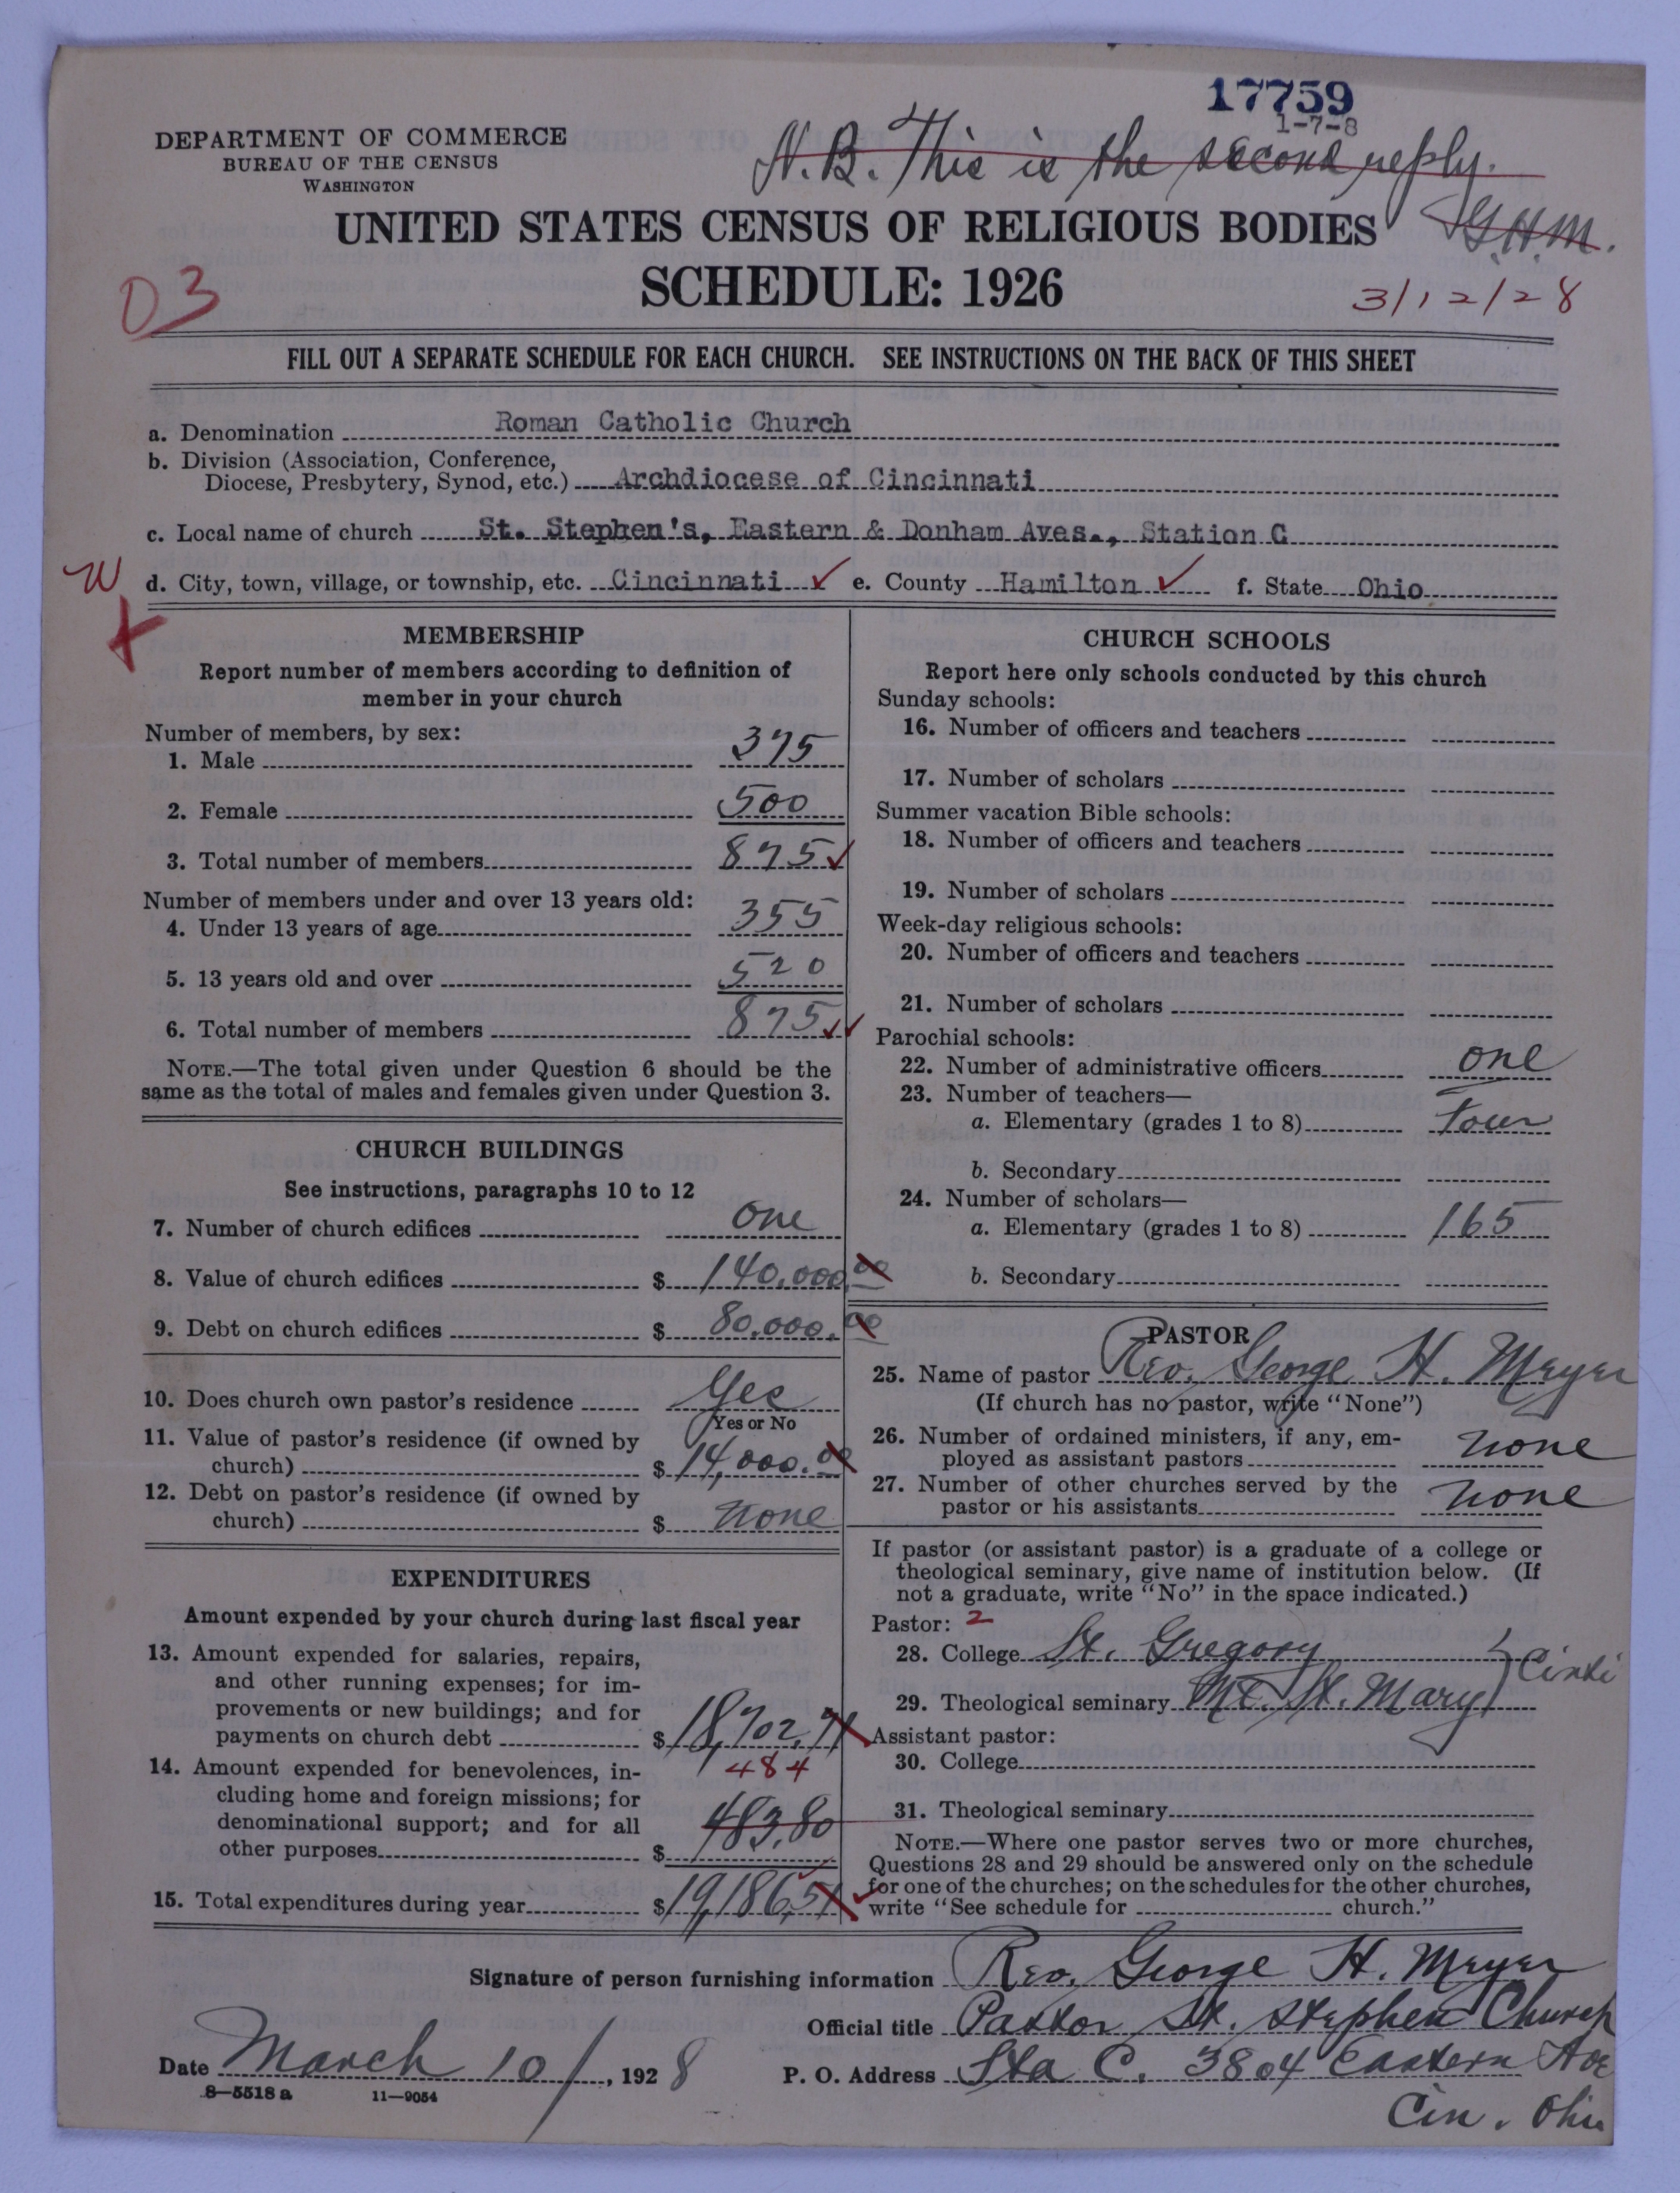 17759
1-7-8
DEPARTMENT OF COMMERCE
BUREAU OF THE CENSUS
WASHINGTON
N.B. This is the second reply.
G.H.M.
UNITED STATES CENSUS OF RELIGIOUS BODIES
SCHEDULE: 1926
03
3/12/28
FILL OUT A SEPARATE SCHEDULE FOR EACH CHURCH. SEE INSTRUCTIONS ON THE BACK OF THIS SHEET
a. Denomination Roman Catholic Church
b. Division (Association, Conference,
Diocese, Presbytery, Synod, etc.) Archdiocese of Cincinnati
c. Local name of church St. Stephen's, Eastern & Donham Aves., Station C
d. City, town, village, or township, etc. Cincinnati ✓ e. County Hamilton ✓ f. State Ohio
MEMBERSHIP
Report number of members according to definition of
member in your church
Number of members, by sex:
1. Male 375
2. Female 500
3. Total number of members 875 ✓
Number of members under and over 13 years old:
4. Under 13 years of age 355
5. 13 years old and over 520
6. Total number of members 875 ✓✓
NOTE.—The total given under Question 6 should be the
same as the total of males and females given under Question 3.
CHURCH BUILDINGS
See instructions, paragraphs 10 to 12
7. Number of church edifices one
8. Value of church edifices $ 140,000.00
9. Debt on church edifices $ 80,000.00
10. Does church own pastor's residence Yes
Yes or No
11. Value of pastor's residence (if owned by
church) $ 14,000.00
12. Debt on pastor's residence (if owned by
church) $ none
EXPENDITURES
Amount expended by your church during last fiscal year
13. Amount expended for salaries, repairs,
and other running expenses; for im-
provements or new buildings; and for
payments on church debt $ 18,702.71
14. Amount expended for benevolences, in-
cluding home and foreign missions; for
denominational support; and for all
other purposes $ 483.80
484
15. Total expenditures during year $ 19,186.51 ✓
CHURCH SCHOOLS
Report here only schools conducted by this church
Sunday schools:
16. Number of officers and teachers
17. Number of scholars
Summer vacation Bible schools:
18. Number of officers and teachers
19. Number of scholars
Week-day religious schools:
20. Number of officers and teachers
21. Number of scholars
Parochial schools:
22. Number of administrative officers one
23. Number of teachers—
a. Elementary (grades 1 to 8) Four
b. Secondary
24. Number of scholars—
a. Elementary (grades 1 to 8) 165
b. Secondary
PASTOR
25. Name of pastor Rev. George H. Meyer
(If church has no pastor, write "None")
26. Number of ordained ministers, if any, em-
ployed as assistant pastors none
27. Number of other churches served by the
pastor or his assistants none
If pastor (or assistant pastor) is a graduate of a college or
theological seminary, give name of institution below. (If
not a graduate, write "No" in the space indicated.)
Pastor: 2
28. College St. Gregory
29. Theological seminary Mt. St. Mary
Assistant pastor:
30. College
31. Theological seminary
NOTE.—Where one pastor serves two or more churches,
Questions 28 and 29 should be answered only on the schedule
for one of the churches; on the schedules for the other churches,
write "See schedule for church."
Signature of person furnishing information Rev. George H. Meyer
Official title Pastor St. Stephen Church
Date March 10/, 1928 P. O. Address Sta C. 3804 Eastern Ave
Cin. Ohio
8—5518 a 11—9054